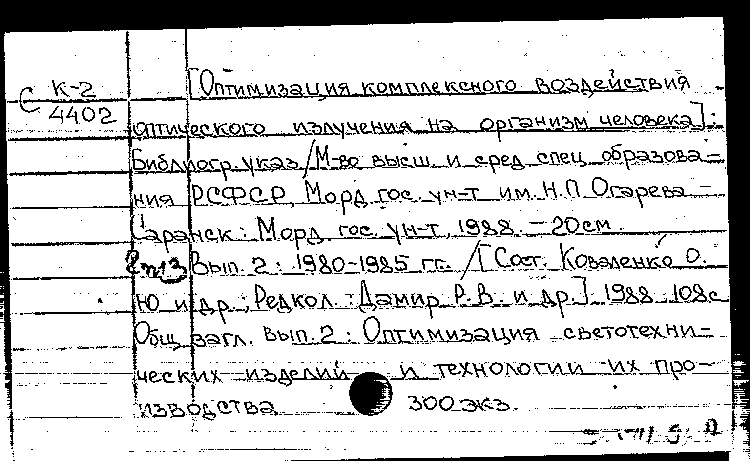 С К-2
4402
[Оптимизация комплексного воздействия
оптического излучения на организм человека]:
Библиогр. указ / М-во высш. и сред. спец. образова-
ния РСФСР, Морд. гос. ун-т им. Н.П. Огарева -
Саранск: Морд. гос. ун-т, 1988. - 20см.
Вып. 2: 1980-1985 гг. / [Сост. Коваленко О.
Ю и др.; Редкол.: Дамир. Р.В. и др.] 1988. 108с
Общ. загл. вып. 2: Оптимизация светотехни-
ческих изделий и технологии их про-
изводства 300 экз.